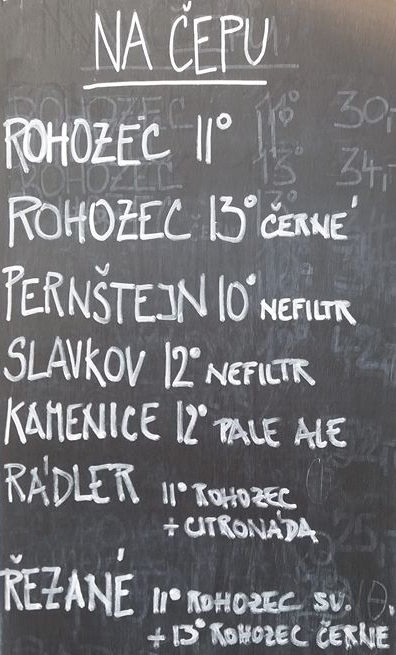 NA ČEPU
ROHOZEC 11°
ROHOZEC 13° ČERNÉ
PERNŠTEJN 10° NEFILTR
SLAVKOV 12° NEFILTR
KAMENICE 12° PALE ALE
RÁDLER 11° ROHOZEC
+ CITRONÁDA
ŘEZANÉ 11° ROHOZEC SV.
+ 13° ROHOZEC ČERNÉ